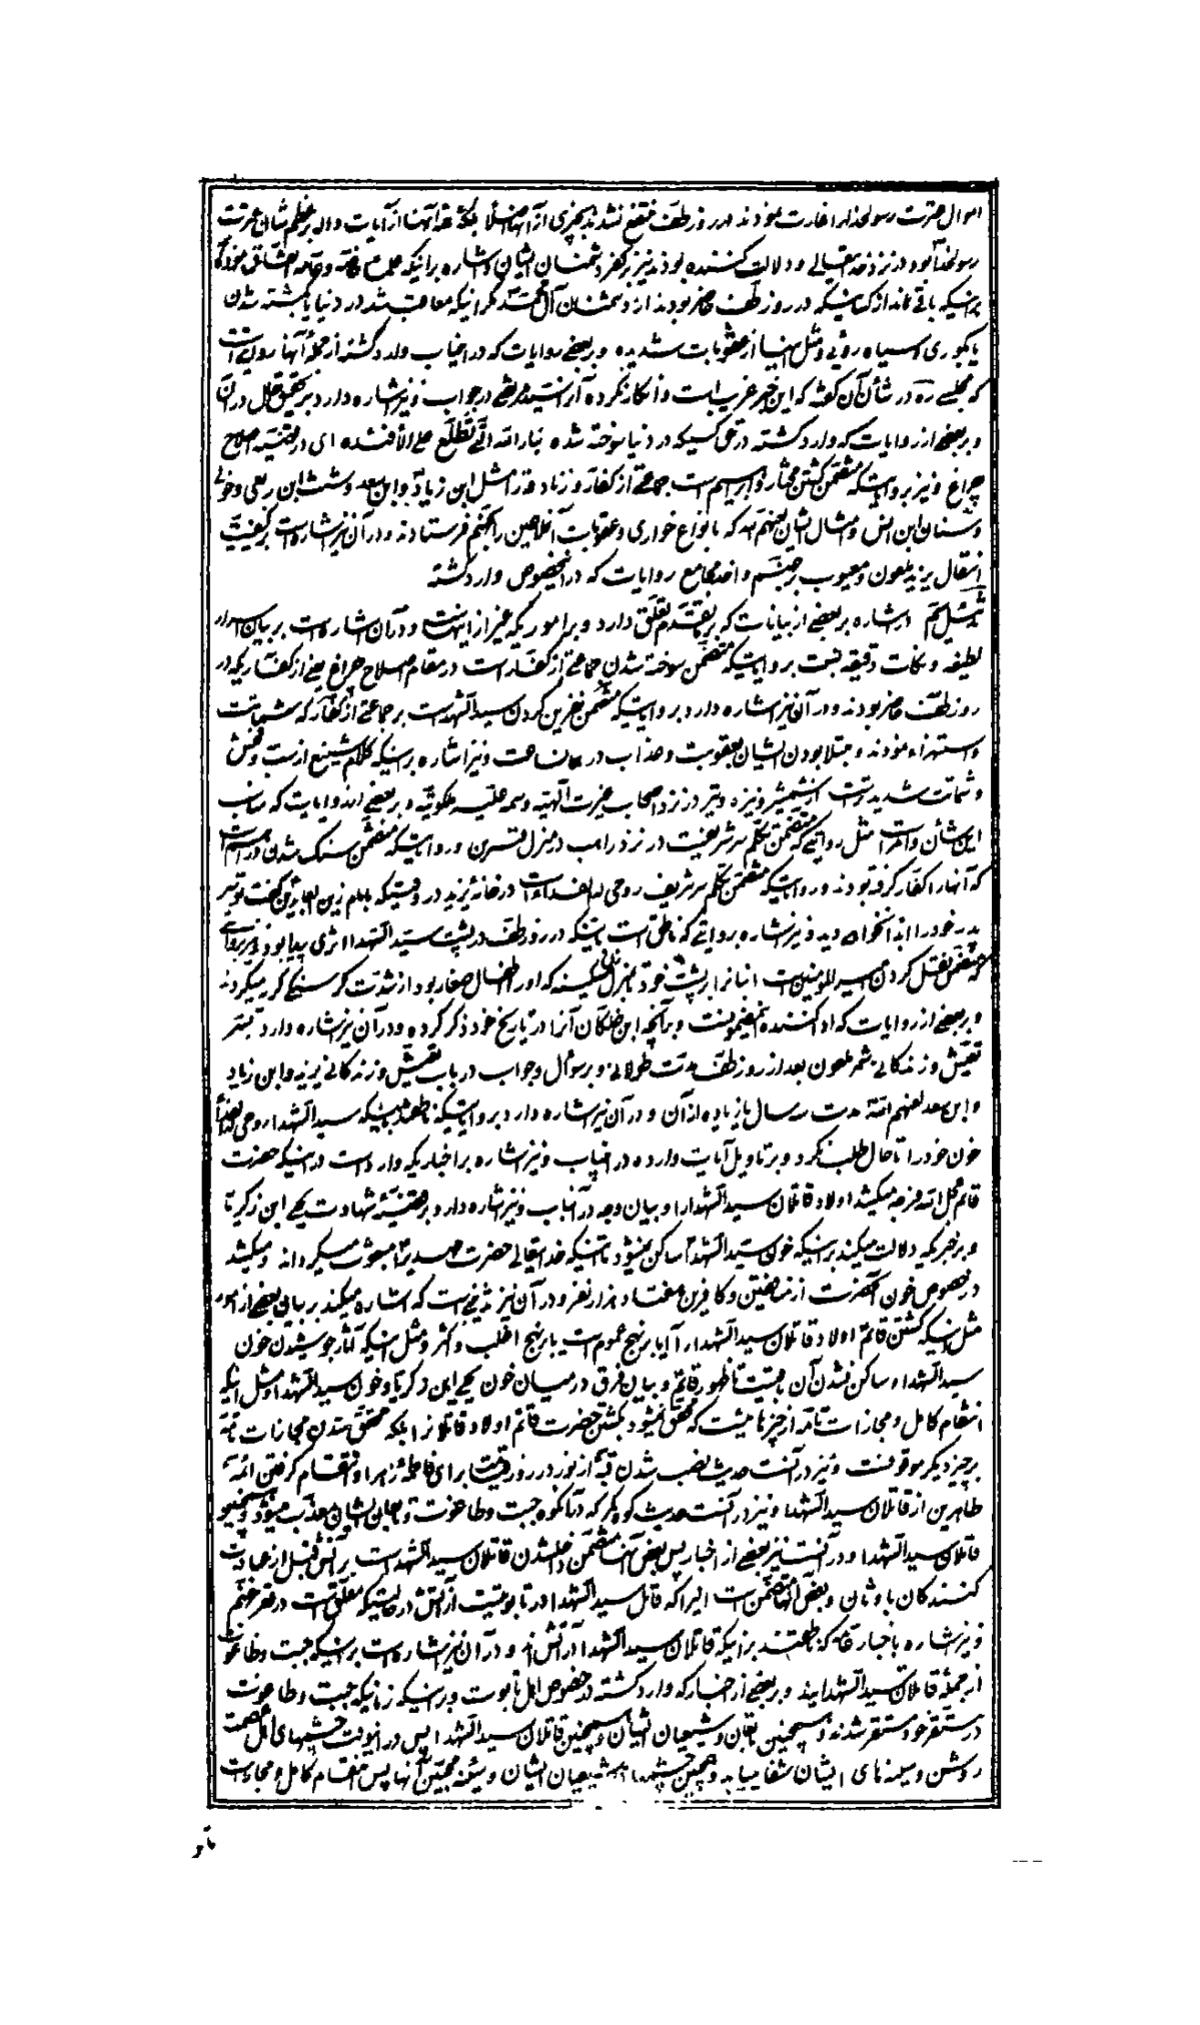 اموال عترت رسولخدا را غارت نمودند در روز طف منتفع نشدند بچیزی از آنها اصلا بلکه همه آنها از آیات داله بر عظم شان عترت
رسولخدا بود در نزد خدایتعالی و دلالت کننده بودند نیز بر کفر دشمنان ایشان و اشاره بر اینکه علمای خاصه و عامه اتفاق نموده‌اند
بر اینکه باقی نماند از کسانیکه در روز طف حاضر بودند از دشمنان آل محمد مگر اینکه معاقب شد در دنیا یا بکشته شدن
یا کوری و سیاه روئی و مثل اینها از عقوبات شدیده و بر بعضی روایات که در این باب وارد گشته از جمله آنها روایتی است
که مجلسی ره در شأن آن گفته که این خبر غریب است و انکار نکرده آنرا سید مرتضی در جواب و نیز اشاره دارد بر تحقیق حال در آن
و بر بعضی از روایات که وارد گشته در حق کسیکه در دنیا سوخته شده بنار الله التی تطلع علی الأفئده ای در قضیه اصلاح
چراغ و نیز بر روایاتیکه متضمن کشتن مختار و ابراهیم است جماعتی از کفار و زنادقه را مثل ابن زیاد و ابن سعد و شبث ابن ربعی و خولی
و سنان ابن انس و امثال ایشان لعنهم الله که با انواع خواری و عقوبات آن ملاعین را بجهنم فرستادند و در آن نیز اشاره است بر کیفیت
انتقال یزید ملعون و معیوب بر جهنم و اخذ مجامع روایات که در اینخصوص وارد گشته
تذییل در اشاره بر بعضی از بیانات که بر ما تقدم تعلق دارد و بر اموریکه غیر از اینهاست و در آن اشاره است بر بیان اسرار
لطیفه و نکات دقیقه نسبت بر روایاتیکه متضمن سوخته شدن جماعتی از کفار است در مقام اصلاح چراغ یعنی از کفاریکه در
روز طف حاضر بودند و در آن نیز اشاره دارد بر روایاتیکه متضمن نفرین کردن سید الشهداست بر جماعتی از کفار که شماتت
و استهزاء نمودند و مبتلا بودن ایشان بعقوبت و عذاب در همان ساعت و نیز اشاره بر اینکه کلام شنیع از سب و فحش
و شماتت شدیدتر است از شمشیر و نیزه و تیر در نزد اصحاب غیرت الهیه و همه علیه ملکوتیه و بر بعضی از روایات که مناسب
این شأن و مقام است مثل روایتی که متضمن تکلم سر شریفست در نزد راهب در منزل قنسرین و روایاتیکه متضمن سنگ شدن دراهم است
که آنها را کفار گرفته بودند و روایاتیکه متضمن تکلم سر شریف روحی له الفداء است در خانه یزید در وقتیکه بامام زین العابدین گفت تو سر
پدر خود را ابدا نخواهی دید و نیز اشاره بر روایتی که ناطق است باینکه در روز طف در پشت سید الشهدا اثری پیدا بود و بر روایتی
که متضمن نقل کردن امیر المؤمنین است انبانرا بر پشت خود بمنزل زنی مسکینه که او را اطفال صغار بود از شدت گرسنگی گریه میکردند
و بر بعضی از روایات که افاده کننده اینمضمونست و بر آنچه ابن خلکان آنرا در تاریخ خود ذکر کرده و در آن نیز اشاره دارد بر
تعیش و زندگانی شمر ملعون بعد از روز طف مدت طولانی و بر سؤال و جواب در باب تعیش و زندگانی یزید و ابن زیاد
و ابن سعد لعنهم الله مدت سه سال یا زیاده از آن و در آن نیز اشاره دارد بر روایاتیکه ناطقند باینکه سید الشهدا روحی له الفدا
خون خود را تا حال طلب نکرد و بر تاویل آیات وارده در این باب و نیز اشاره بر اخباریکه وارد است در اینکه حضرت
قائم عجل الله فرجه میکشد اولاد قاتلان سید الشهدا را و بیان وجه در این باب و نیز اشاره دارد بر قضیه شهادت یحیی ابن زکریا
و بر خبریکه دلالت میکند بر اینکه خون سید الشهدا ساکن نمیشود تا اینکه خدایتعالی حضرت مهدیرا مبعوث میگرداند و میکشد
در خصوص خون آنحضرت از منافقین و کافرین هفتاد هزار نفر و در آن نیز تذییلی است که اشاره میکند بر بیان بعضی از امور
مثل اینکه کشتن قائم اولاد قاتلان سید الشهدا را آیا بر نهج عموم است یا بر نهج اغلب و اکثر و مثل اینکه آثار جوشیدن خون
سید الشهداء ساکن نشدن آن باقیست تا ظهور قائم و بیان فرق در میان خون یحیی ابن زکریا و خون سید الشهدا و مثل اینکه
انتقام کامل و مجازات تامه از چیزهائیست که محقق نمیشود بکشتن حضرت قائم اولاد قاتلانرا بلکه محقق شدن مجازات تامه
بر چیز دیگر موقوفست و نیز در آنست حدیث نصب شدن قبه از نور در روز قیامت برای فاطمه زهرا و انتقام گرفتن ائمه
طاهرین از قاتلان سید الشهدا و نیز در آنست حدیث کوه کمد که در آن کوه جبت و طاغوت و تابعان ایشان معذب میشوند و همچنین
قاتلان سید الشهدا و در آنست نیز بعضی از اخبار پس بعض آنها متضمن داخلشدن قاتلان سید الشهداست بر آتش قبل از عبادت
کنندگان باوثان و بعض آنها متضمن است اینرا که قاتل سید الشهدا در تابوتیست از آتش در حالتیکه معلق است در قعر جهنم
و نیز اشاره باخبار عامه که ناطقند بر اینکه قاتلان سید الشهدا در آتش‌اند و در آن نیز اشاره است بر اینکه جبت و طاغوت
از جمله قاتلان سید الشهدایند و بر بعضی از اخبار که وارد گشته در خصوص اهل تابوت و بر اینکه زمانیکه جبت و طاغوت
در مستقر خود مستقر شدند و همچنین تابعان و شیعیان ایشان و همچنین قاتلان سید الشهدا پس در اینوقت چشمهای اهل عصمت
روشن و سینه‌های ایشان شفا مییابد و همچنین چشمها شیعیان ایشان و سینه محبین آنها پس انتقام کامل و مجازات
تامه